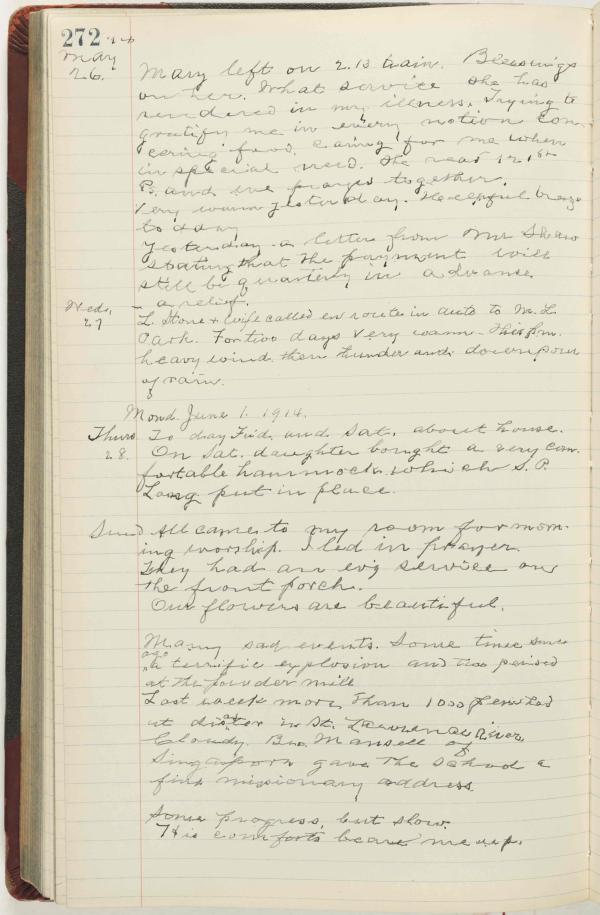 272
May
26.
Mary left on 2.13 train. Blessings
on her. What service she has
rendered in my illness. Trying to
gratify me in every notion con-
cering food. Caring for me when
in special need. She read 121st
Ps. and we prayed together.
Very warm yesterday. Helpful breeze
to day
Yesterday a letter from Mr Shaw
stating that the payment will
still be quarterly in advance.
- a relief.
Weds.
27
L. Stone + wife called en route in auto to M. L.
Park. For two days very warm - This p.m.
heavy wind then thunder and downpour
of rain.
Mond. June 1. 1914.
Thurs
28.
To day Frid. and Sat. about house.
On Sat. daughter bought a very com-
fortable hammock which S. P.
Long put in place.
Sund
All came to my room for morn-
ing worship. I led in prayer.
They had an ev'g service on
the front porch.
Our flowers are beautiful.
Many sad events. Some time since
ago
a terrific explosion and two perised
at the powder mill
Last week more than 1000 perished
at disaster in St. Lawrence River
Cloudy. Bro. Mansell of
Singapoor gave the school a
fine missionary address.
Some progress, but slow.
His comforts bears me up.